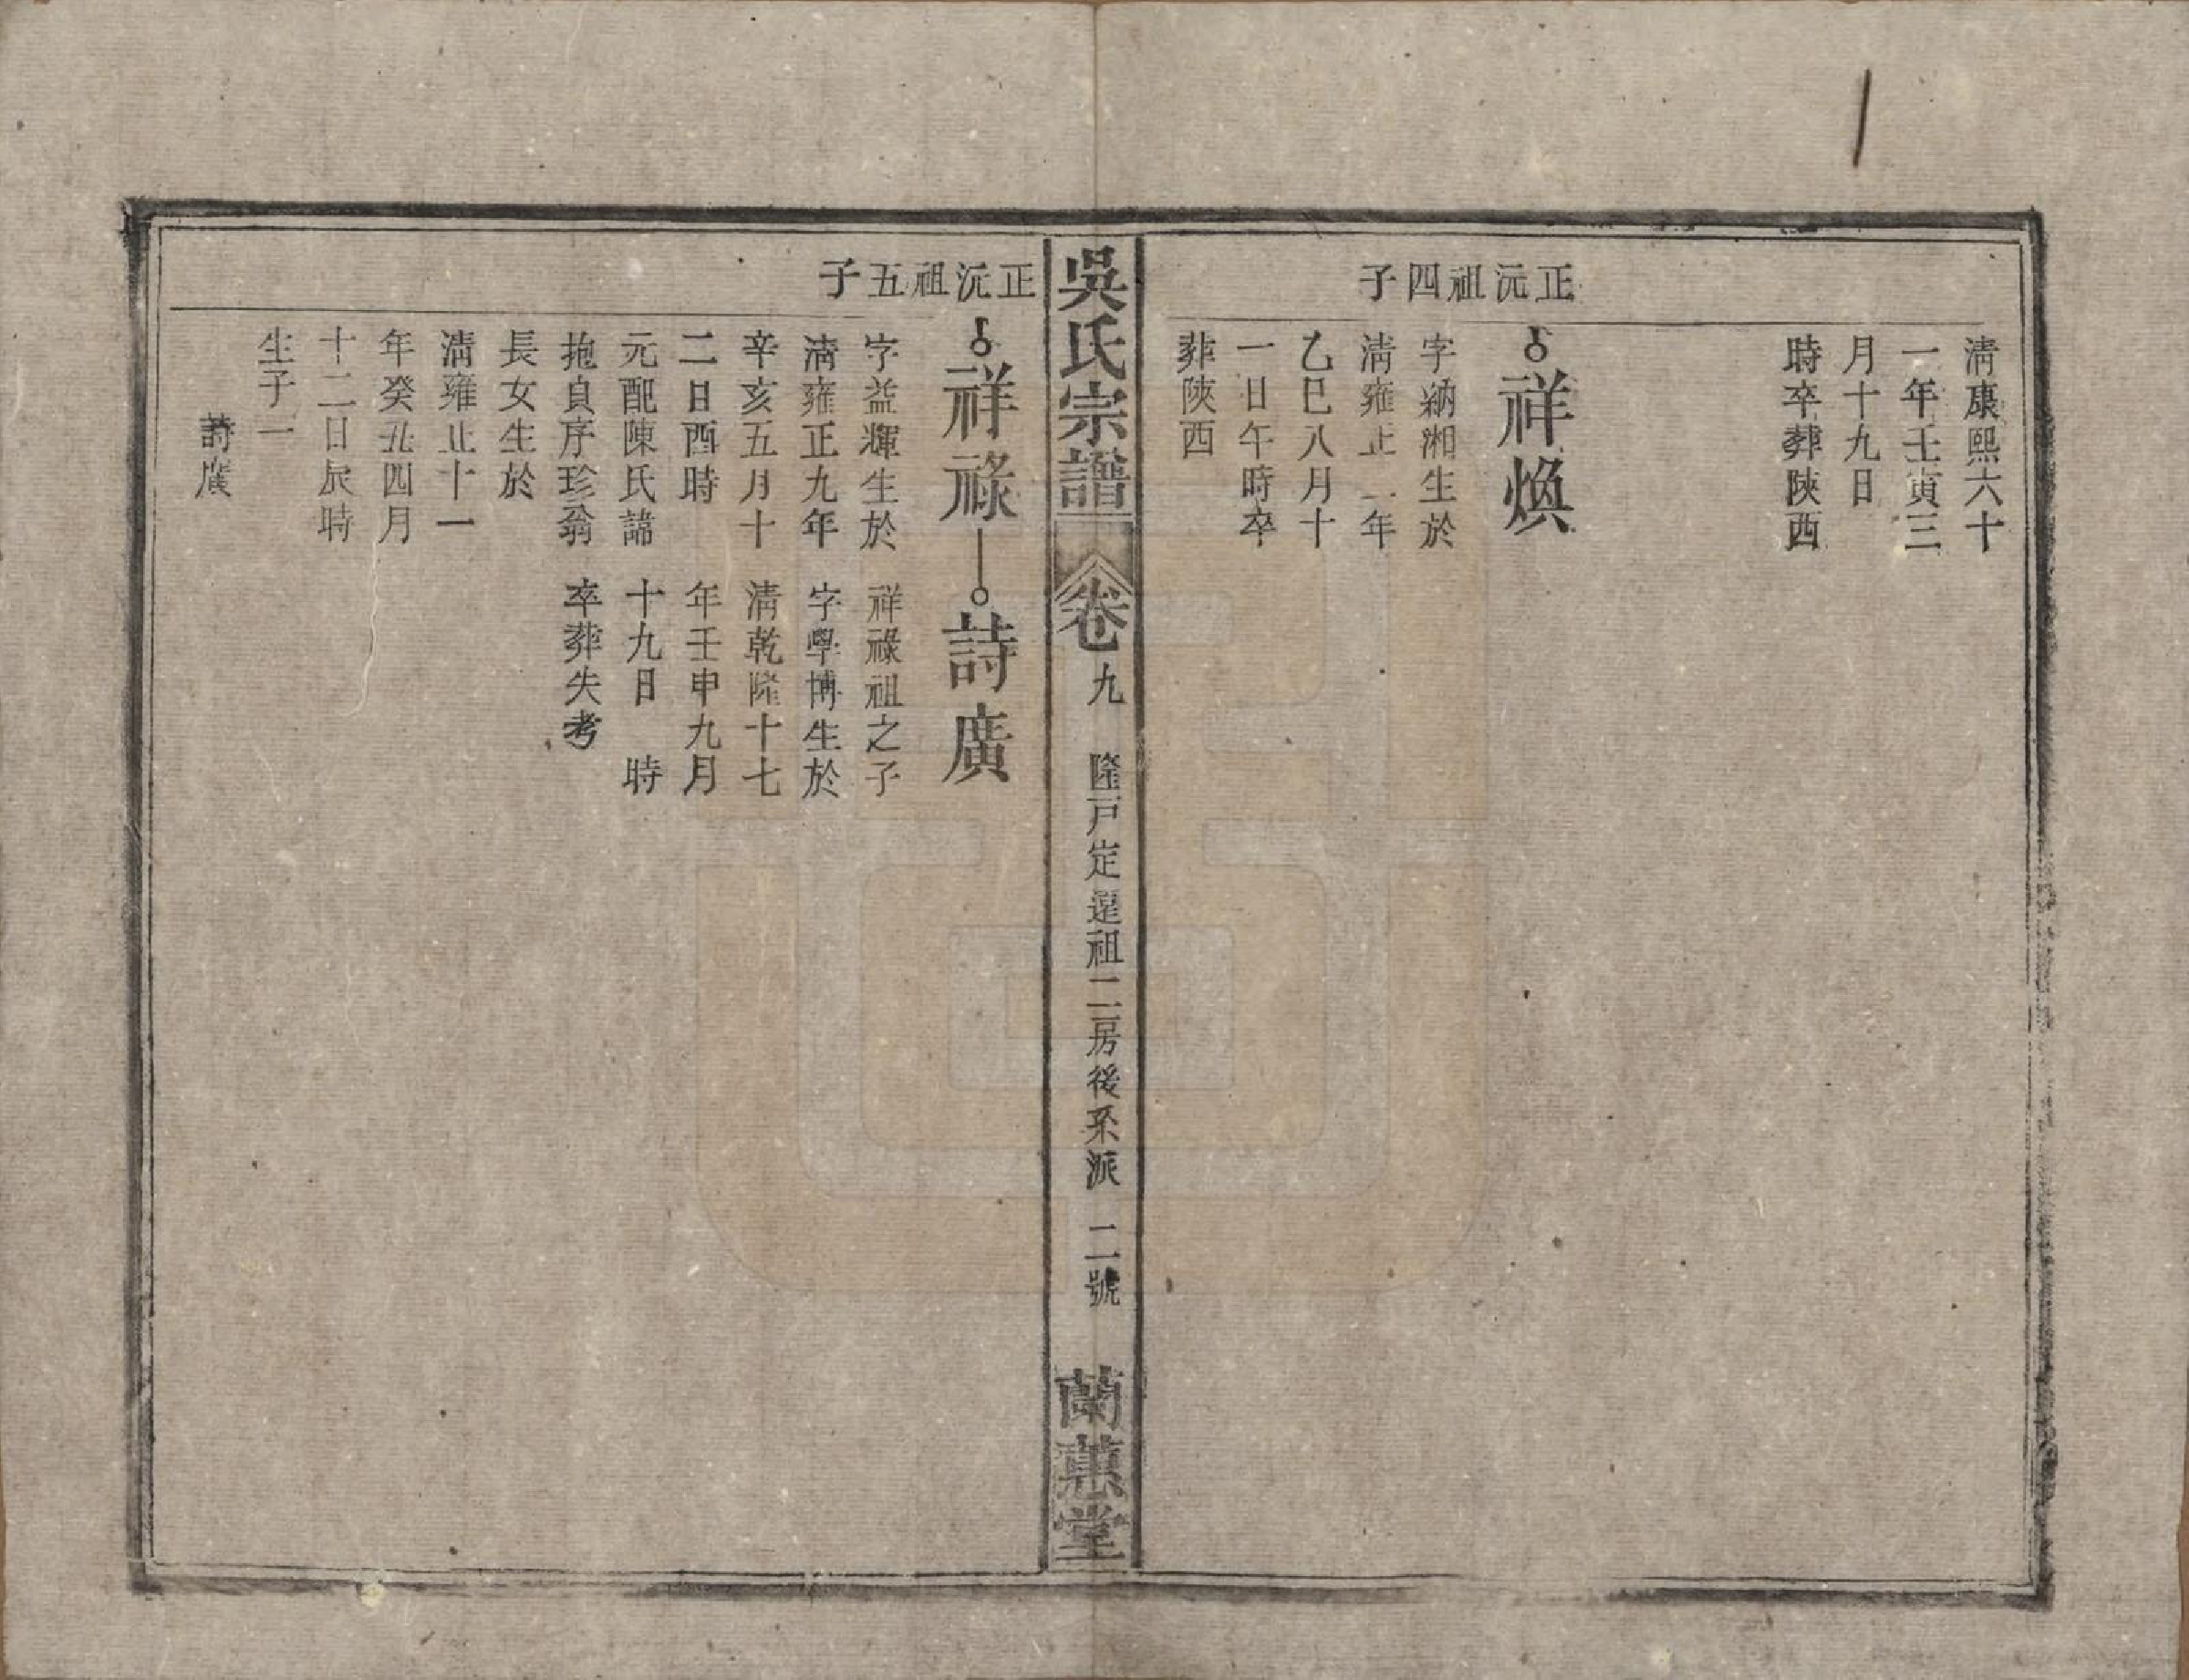 清康熙六十
一年壬寅三
月十九日
時卒葬陝西
正沅祖四子
祥煥
字納湘生於
清雍正二年
乙巳八月十
一日午時卒
葬陝西
吳氏宗譜
卷九
隆戸定遑祖二房後系派
二號
蘭蕙堂
正沅祖五子
祥祿
詩廣
字益輝生於
清雍正九年
辛亥五月十
二日酉時
元配陳氏諱
抱貞序珍翁
長女生於
清雍正十一
年癸丑四月
十二日辰時
生子一
詩廣
祥祿祖之子
字學博生於
清乾隆十七
年壬申九月
十九日 時
卒葬失考